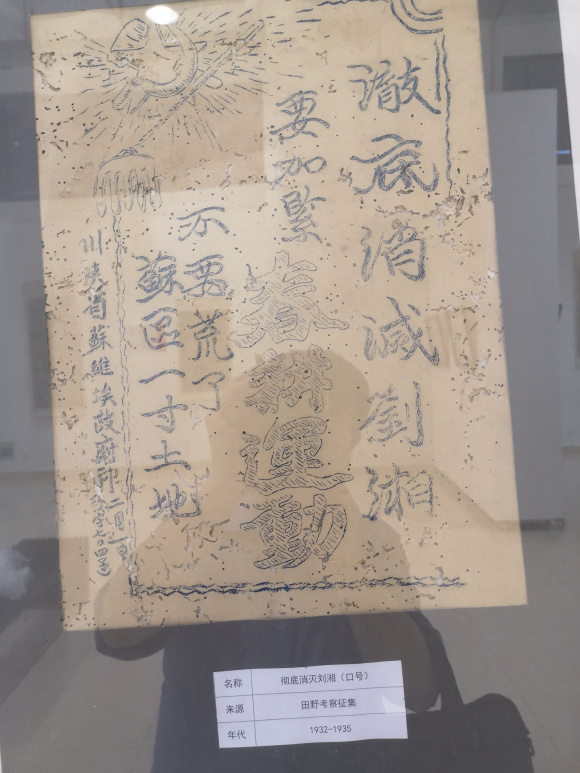 澈底消滅劉湘
要加緊
春耕運動
不要荒了
蘇區一寸土地
川陕省蘇維埃政府印 二月一日
名称 彻底消灭刘湘（口号）
来源 田野考察征集
年代 1932-1935